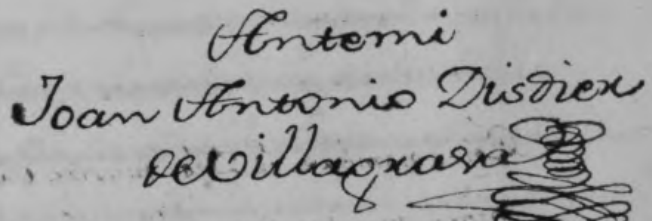 Antemi
Joan Antonio Disdier
de Villagrasa